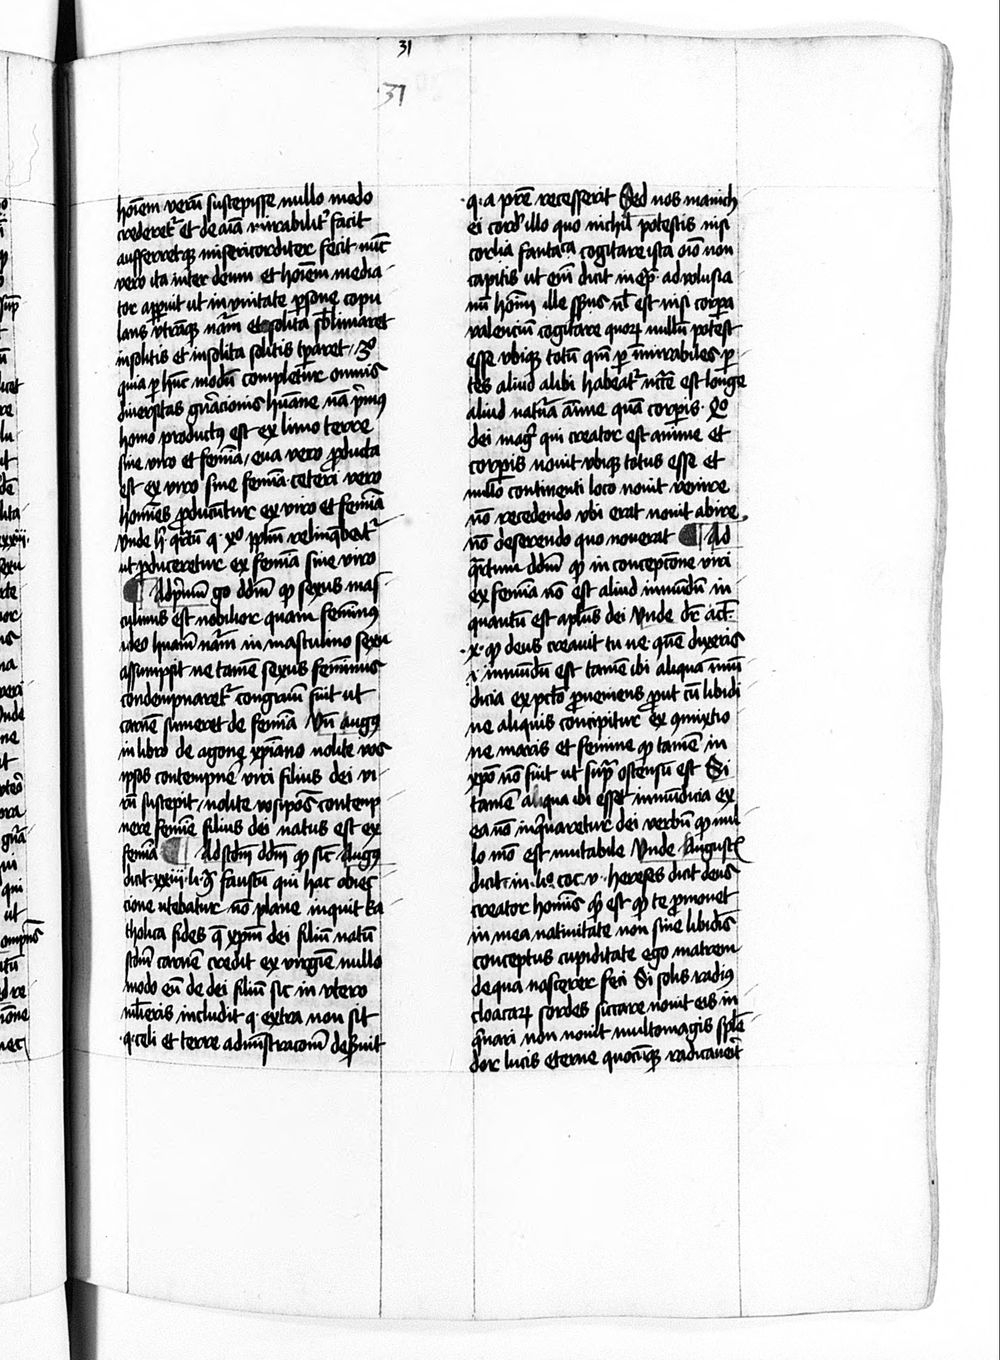 31
31
hoīem verū suscepisse nullo modo
crederetʳ et de aīa mirabilitʳ facit
aufferretqꝫ misericorditer fecit nūc
vero ita inter deum et hoīem media
tor apparuit ut in vnitate ꝑsone copu
lans vtrāqꝫ nām et solita sblimaret
insolitis et insolita solitis tꝑaret / 3º
quia ꝑ hūc modū completur omnis
diuersitas gnāacionis huāne nā pmus
homo productꝰ est ex limo terre
sine viro et femīa / eua vero ꝓducta
est ex viro sine femīa ceteri vero
homīes ꝓducūtur ex viro et femīa
vnde h qrtū q xo ppm relinqbatʳ
ut ꝓduceretur ex femīa sine viro
Ad pmū go ddm ꝙ sexus mas
culinus est nobilior quam femīnꝰ
ideo huām nām in masculino sexu
assumpsit ne tamē sexus femīnus
contempnaretʳ congruū fuit ut
carnē sumeret de femīa Vn augꝰ
in libro de agone xpiāno nolite vos
ipsos contempnē viri filius dei vi
rū suscepit / nolite vos ipās contemp
nere femīe filius dei natus est ex
femīa Ad scdm ddm ꝙ sic Augꝰ
dicit xxiii li ꝯ faustū qui hac obiec
cione vtebatur nō plane inquit ka
tholica fides q xpm dei filiū natū
scdm carnē credit ex virgīe nullo
modo eū de dei filiū sic in vtero
mlieris includit q extra non sit
q celi et terre admīstracoīm deseruit
q a pre recesserit Sed nos manich
ei corde illo quo nichil potestis nisi
cordia fantasta cogitare ista oīo non
capitis ut em dicit in epl ad volusia
num homīm ille sensus nl est nisi corpa
valencium cogitare quoꝝ nullū potest
esse vbiqꝫ totū qm ꝑ īnūerabiles ꝑ
tes aliud alibi habeatʳ ncē est longe
aliud natura aīme quā corporis qo
dei magˢ qui creator est anime et
corporis nouit vbiqꝫ totus esse et
nullo contineri loco nouit venire
nō recedendo vbi erat nouit abire
nō deserendo quo uenerat Ad
qrtum ddm ꝙ in concepcōne viri
ex femīa nō est aliud inmūdū in
quantū est opus dei Vnde dr act
x ꝙ deus creauit tu ne quē dixeris
inmūdū est tamē ibi aliqua inmū
dicia ex pcto ꝓueniens ꝓut cū libidi
ne aliquis concipitur ex ꝯmixtio
ne maris et femine ꝙ tamē in
xpo nō fuit ut supra ostensū est Si
tamē aliqua ibi esset inmūdicia ex
ea nō inqnaretur dei verbū ꝙ nul
lo mō est mutabile Vnde Augusti
dicit in li coc v hereses dicit deus
creator homīs qd est ꝙ te ꝑmouet
in mea natiuitate non sine libidīs
conceptus cupiditate ego matrem
de qua nascerer feci Si solis radiꝰ
cloacaꝝ sordes siccare nouit eis in
qnari non nouit multomagis sple
dor lucis eterne quocūqꝫ radicauerit